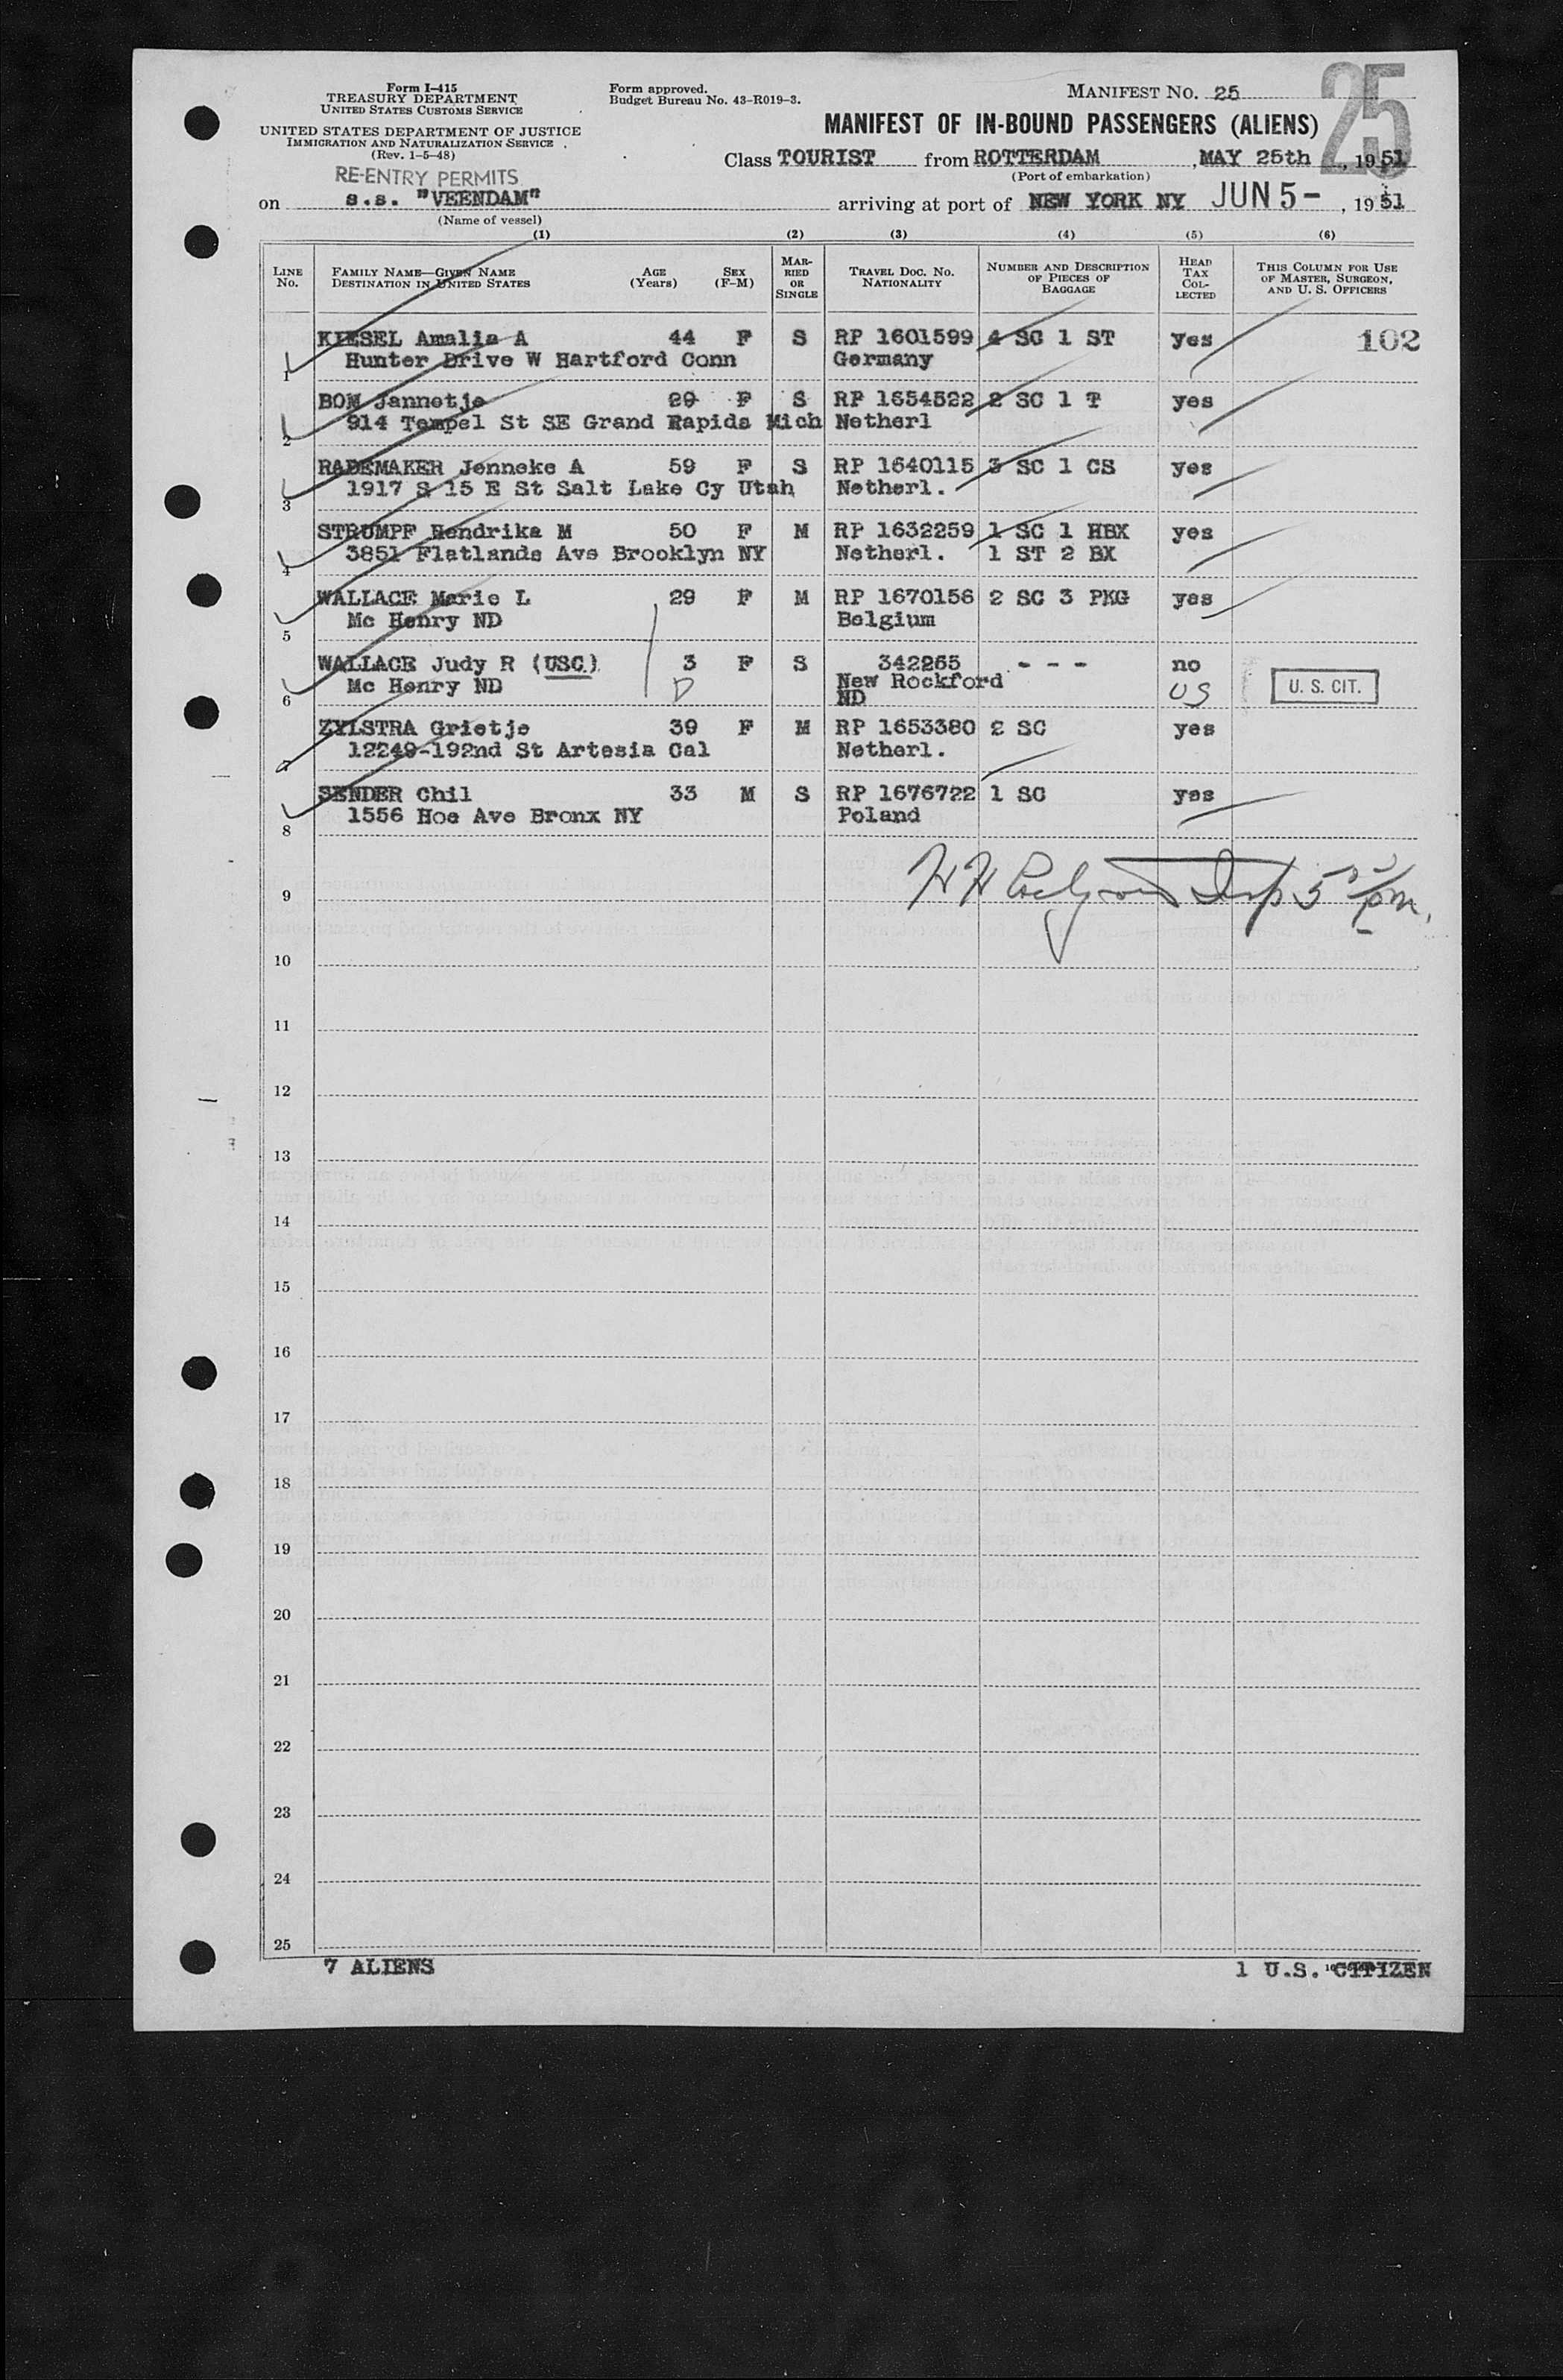 Form I-415
TREASURY DEPARTMENT
UNITED STATES CUSTOMS SERVICE
UNITED STATES DEPARTMENT OF JUSTICE
IMMIGRATION AND NATURALIZATION SERVICE
(Rev. 1-5-48)
Form approved.
Budget Bureau No. 43-R019-3.
MANIFEST No. 25
25
MANIFEST OF IN-BOUND PASSENGERS (ALIENS)
Class TOURIST from ROTTERDAM, MAY 25th, 1951
(Port of embarkation)
RE-ENTRY PERMITS
on s.s. "VEENDAM" arriving at port of NEW YORK NY JUN 5-, 1951
(Name of vessel)
(1) (2) (3) (4) (5) (6)
LINE No. FAMILY NAME—GIVEN NAME DESTINATION IN UNITED STATES AGE (Years) SEX (F-M) MARRIED OR SINGLE TRAVEL DOC. NO. NATIONALITY NUMBER AND DESCRIPTION OF PIECES OF BAGGAGE HEAD TAX COLLECTED THIS COLUMN FOR USE OF MASTER, SURGEON, AND U. S. OFFICERS
KIESEL Amalia A 44 F S RP 1601599 4 SC 1 ST yes 102
1 Hunter Drive W Hartford Conn Germany
BOM Jannetje 29 F S RP 1654522 2 SC 1 T yes
2 914 Tempel St SE Grand Rapids Mich Netherl
RADEMAKER Jenneke A 59 F S RP 1640115 3 SC 1 CS yes
3 1917 S 15 E St Salt Lake Cy Utah Netherl.
STRUMPF Hendrika M 50 F M RP 1632259 1 SC 1 HBX yes
4 3851 Flatlands Ave Brooklyn NY Netherl. 1 ST 2 BX
WALLACE Marie L 29 F M RP 1670156 2 SC 3 PKG yes
5 Mc Henry ND Belgium
WALLACE Judy R (USC) 3 F S 342265 - - - no
6 Mc Henry ND D New Rockford ND US U. S. CIT.
ZYLSTRA Grietje 39 F M RP 1653380 2 SC yes
7 12249-192nd St Artesia Cal Netherl.
SENDER Chil 33 M S RP 1676722 1 SC yes
8 1556 Hoe Ave Bronx NY Poland
9
10
11
12
13
14
15
16
17
18
19
20
21
22
23
24
25
7 ALIENS 1 U.S. CITIZEN